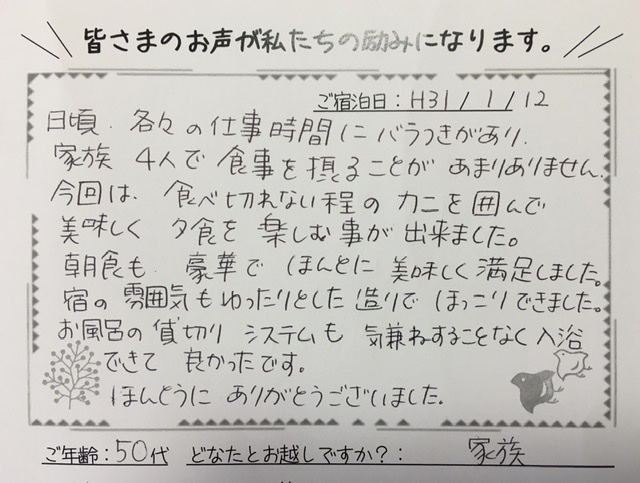 皆さまのお声が私たちの励みになります。
ご宿泊日：H31/1/12
日頃、各々の仕事時間にバラつきがあり、
家族4人で食事を摂ることがあまりありません。
今回は、食べ切れない程のカニを囲んで
美味しく夕食を楽しむ事が出来ました。
朝食も豪華でほんとに美味しく満足しました。
宿の雰囲気もゆったりとした造りでほっこりできました。
お風呂の貸切りシステムも気兼ねすることなく入浴
できて良かったです。
ほんとうにありがとうございました。
ご年齢：50代 どなたとお越しですか？：家族